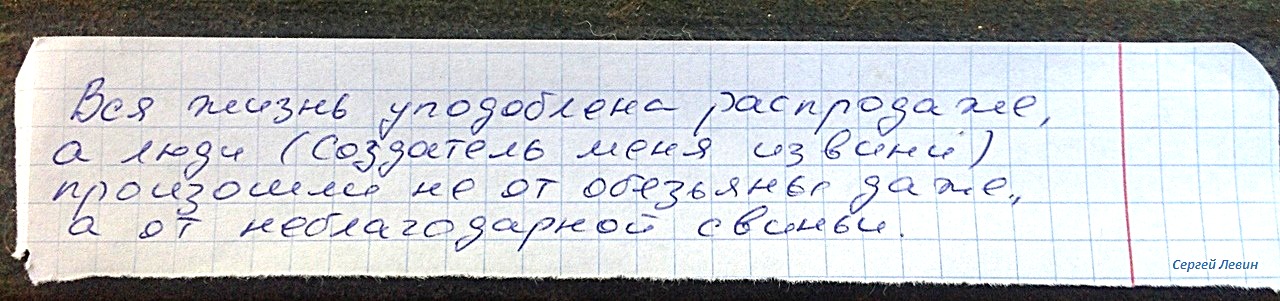 Вся жизнь уподоблена распродаже,
а люди (Создатель меня извини)
произошли не от обезьяны даже,
а от неблагодарной свиньи.
Сергей Левин